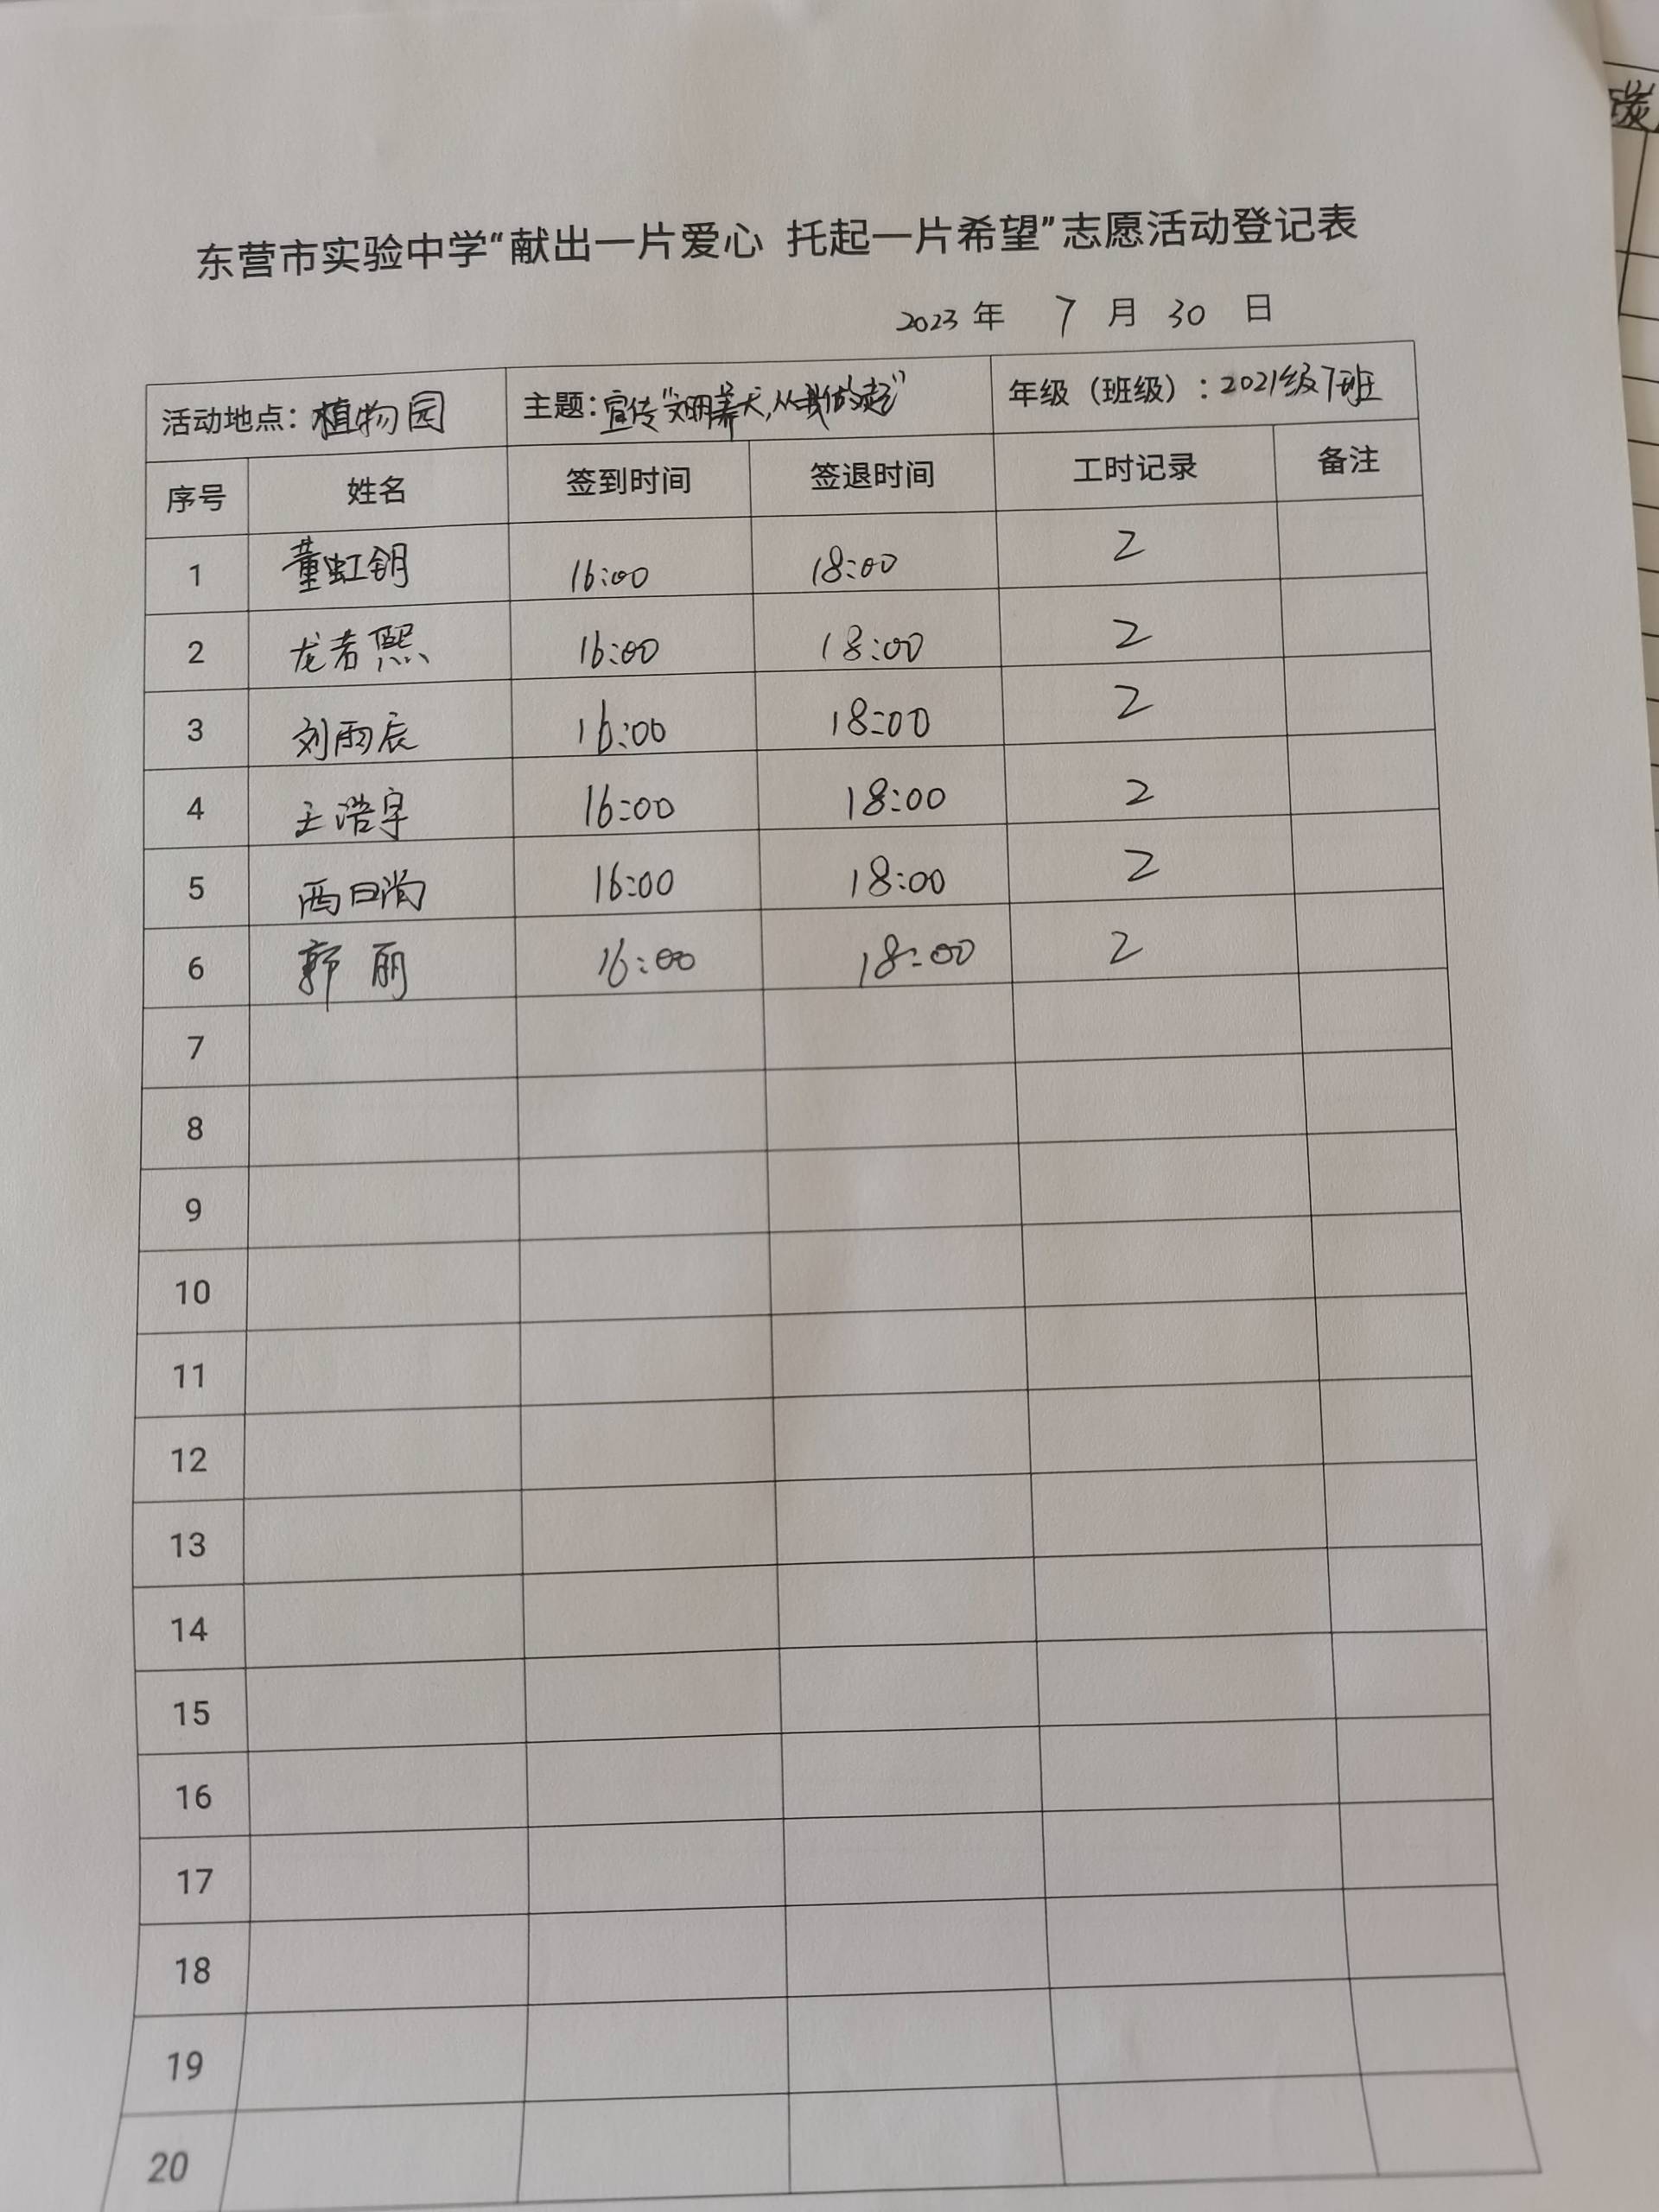 东营市实验中学“献出一片爱心 托起一片希望”志愿活动登记表
2023 年 7 月 30 日
活动地点：植物园 主题：宣传“文明养犬，从我做起” 年级（班级）：2021级7班
序号 姓名 签到时间 签退时间 工时记录 备注
1 董虹钥 16:00 18:00 2
2 龙者熙 16:00 18:00 2
3 刘雨辰 16:00 18:00 2
4 王浩宇 16:00 18:00 2
5 16:00 18:00 2
6 郭丽 16:00 18:00 2
7
8
9
10
11
12
13
14
15
16
17
18
19
20